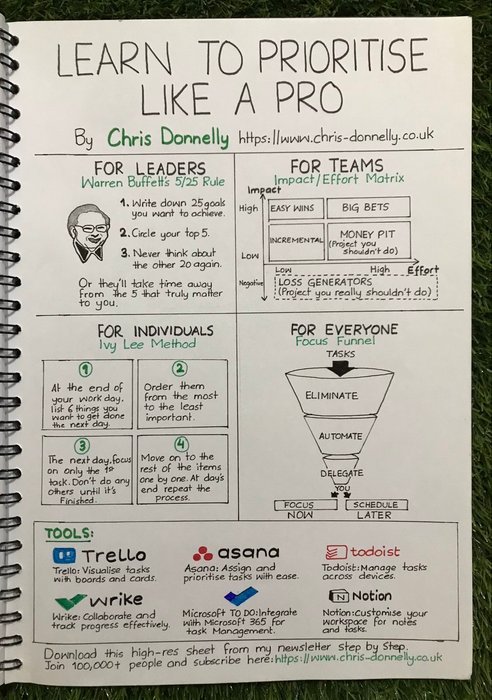 LEARN TO PRIORITISE
LIKE A PRO
By Chris Donnelly https://www.chris-donnelly.co.uk
FOR LEADERS
Warren Buffett's 5/25 Rule
1. Write down 25 goals
you want to achieve.
2. Circle your top 5.
3. Never think about
the other 20 again.
Or they'll take time away
from the 5 that truly matter
to you.
FOR TEAMS
Impact/Effort Matrix
Impact
High
EASY WINS
BIG BETS
INCREMENTAL
MONEY PIT
(Project you
shouldn't do)
Low
Low
High
Effort
Negative
LOSS GENERATORS
(Project you really shouldn't do)
FOR INDIVIDUALS
Ivy Lee Method
1
At the end of
your work day,
list 6 things you
want to get done
the next day.
2
Order them
from the most
to the least
important.
3
The next day, focus
on only the 1st
task. Don't do any
others until it's
finished.
4
Move on to the
rest of the items
one by one. At day's
end repeat the
process.
FOR EVERYONE
Focus Funnel
TASKS
ELIMINATE
AUTOMATE
DELEGATE
YOU
FOCUS
SCHEDULE
NOW
LATER
TOOLS:
Trello
Trello: Visualise tasks
with boards and cards.
asana
Asana: Assign and
prioritise tasks with ease.
todoist
Todoist: Manage tasks
across devices.
wrike
Wrike: Collaborate and
track progress effectively.
Microsoft TO DO: Integrate
with Microsoft 365 for
task Management.
Notion
Notion: Customise your
workspace for notes
and tasks.
Download this high-res Sheet from my newsletter Step by Step.
Join 100,000+ people and subscribe here: https://www.chris-donnelly.co.uk